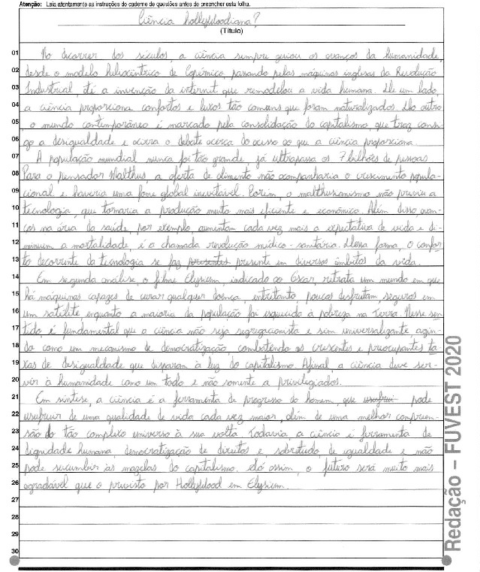 Atenção: Leia atentamente as instruções do caderno de questões antes de preencher esta folha.
Ciência hollywoodiana?
(Título)
01 No decorrer dos séculos, a ciência sempre guiou os avanços da humanidade,
02 desde o modelo heliocêntrico de Copérnico, passando pelas máquinas inglesas da Revolução
03 Industrial, até a invenção da internet que remodelou a vida humana. De um lado,
04 a ciência proporciona confortos e luxos tão comuns que foram naturalizados. De outro
05 o mundo contemporâneo é marcado pela consolidação do capitalismo, que traz consi-
06 go a desigualdade e acirra o debate acerca do acesso ao que a ciência proporciona.
07 A população mundial nunca foi tão grande, já ultrapassa os 7 bilhões de pessoas.
08 Para o pensador Malthus, a oferta de alimento não acompanharia o crescimento popula-
09 cional e haveria uma fome global inevitável. Porém, o malthusianismo não previu a
10 tecnologia, que tornaria a produção muito mais eficiente e econômica. Além disso avan-
11 ços na área da saúde, por exemplo, aumentam cada vez mais a expectativa de vida e di-
12 minuem a mortalidade, é a chamada revolução médico-sanitária. Dessa forma, o confor-
13 to decorrente da tecnologia se faz presente em diversos âmbitos da vida.
14 Em segunda análise, o filme Elysium, indicado ao Oscar, retrata um mundo em que
15 há máquinas capazes de curar qualquer doença, entretanto, poucos desfrutam seguros em
16 um satélite enquanto a maioria da população foi esquecida a pobreza na Terra. Nesse sen-
17 tido é fundamental que a ciência não seja segregacionista e sim universalizante agin-
18 do como um mecanismo de democratização, combatendo as crescentes e preocupantes ta-
19 xas de desigualdade que disparam à luz do capitalismo. Afinal, a ciência deve ser-
20 vir à humanidade como um todo e não somente a privilegiados.
21 Em síntese, a ciência é a ferramenta de progresso do homem, que pode
22 usufruir de uma qualidade de vida cada vez maior, além de uma melhor compreen-
23 são do tão complexo universo à sua volta. Todavia, a ciência é ferramenta de
24 dignidade humana, democratização de direitos e, sobretudo, de igualdade e não
25 pode sucumbir às mazelas do capitalismo. Só assim, o futuro será muito mais
26 agradável que o previsto por Hollywood em Elysium.
27
28
29
30
Redação – FUVEST 2020